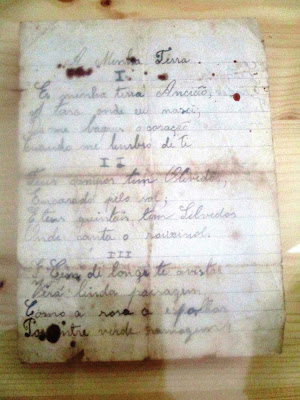 A Minha Terra.
I
És minha terra Ancião,
A terra onde eu nasci,
me o coração
Quando me lembro de ti
II
Teus tem Olivedos,
pelo sol,
E teus quintais tem Silvedos
Onde canta o rouxinol.
III
de longe te avista
Verá linda paisagem
Como a rosa a espalhar
entre verde ramagem